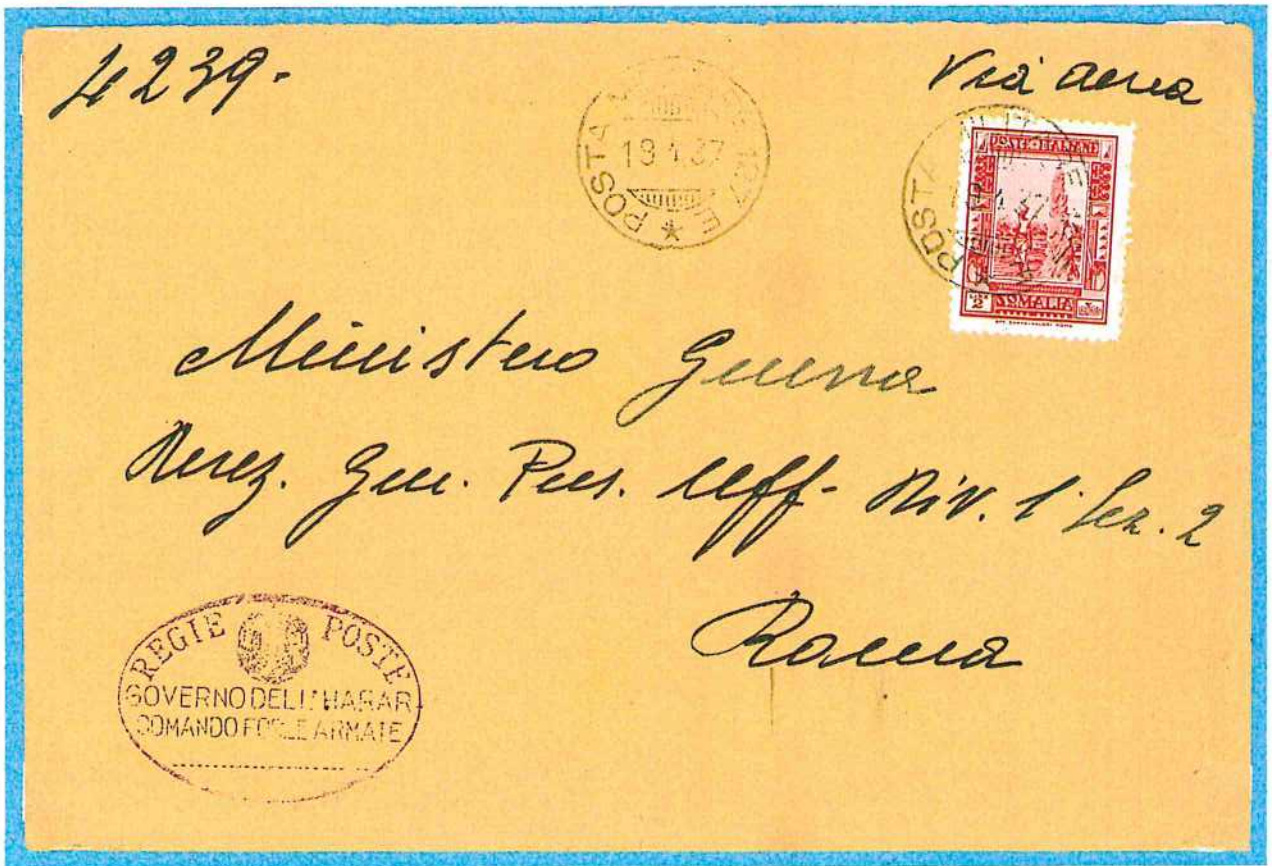 4239.
Via aerea
POSTA 127 E
19 4 37
POSTA
POSTE ITALIANE
2 SOMALIA
Ministero Guerra
Direz. Gen. Pers. Uff- Div. 1 Sez. 2
Roma
REGIE POSTE
GOVERNO DELL'HARAR
COMANDO FORZE ARMATE